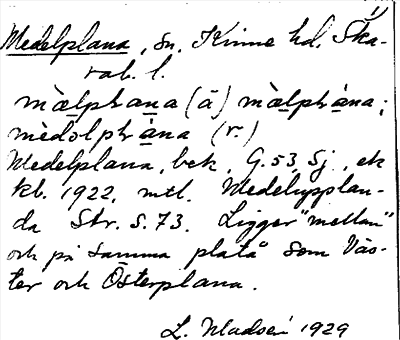 1)
Medelplana, sn. Kinne hd. Ska-
rab. l.
mæ̀lpḷana (ä) mæ̀lpḷȧ̀na;
mèdəlpḷȧ̀na (r.)
Medelplana, bek. G. 53 Sj., ek
kb. 1922, mtl. Medelupplan-
da Str. S. 73. Ligger "mellan"
och på samma platå som Väs-
ter och Österplana.
L. 1929